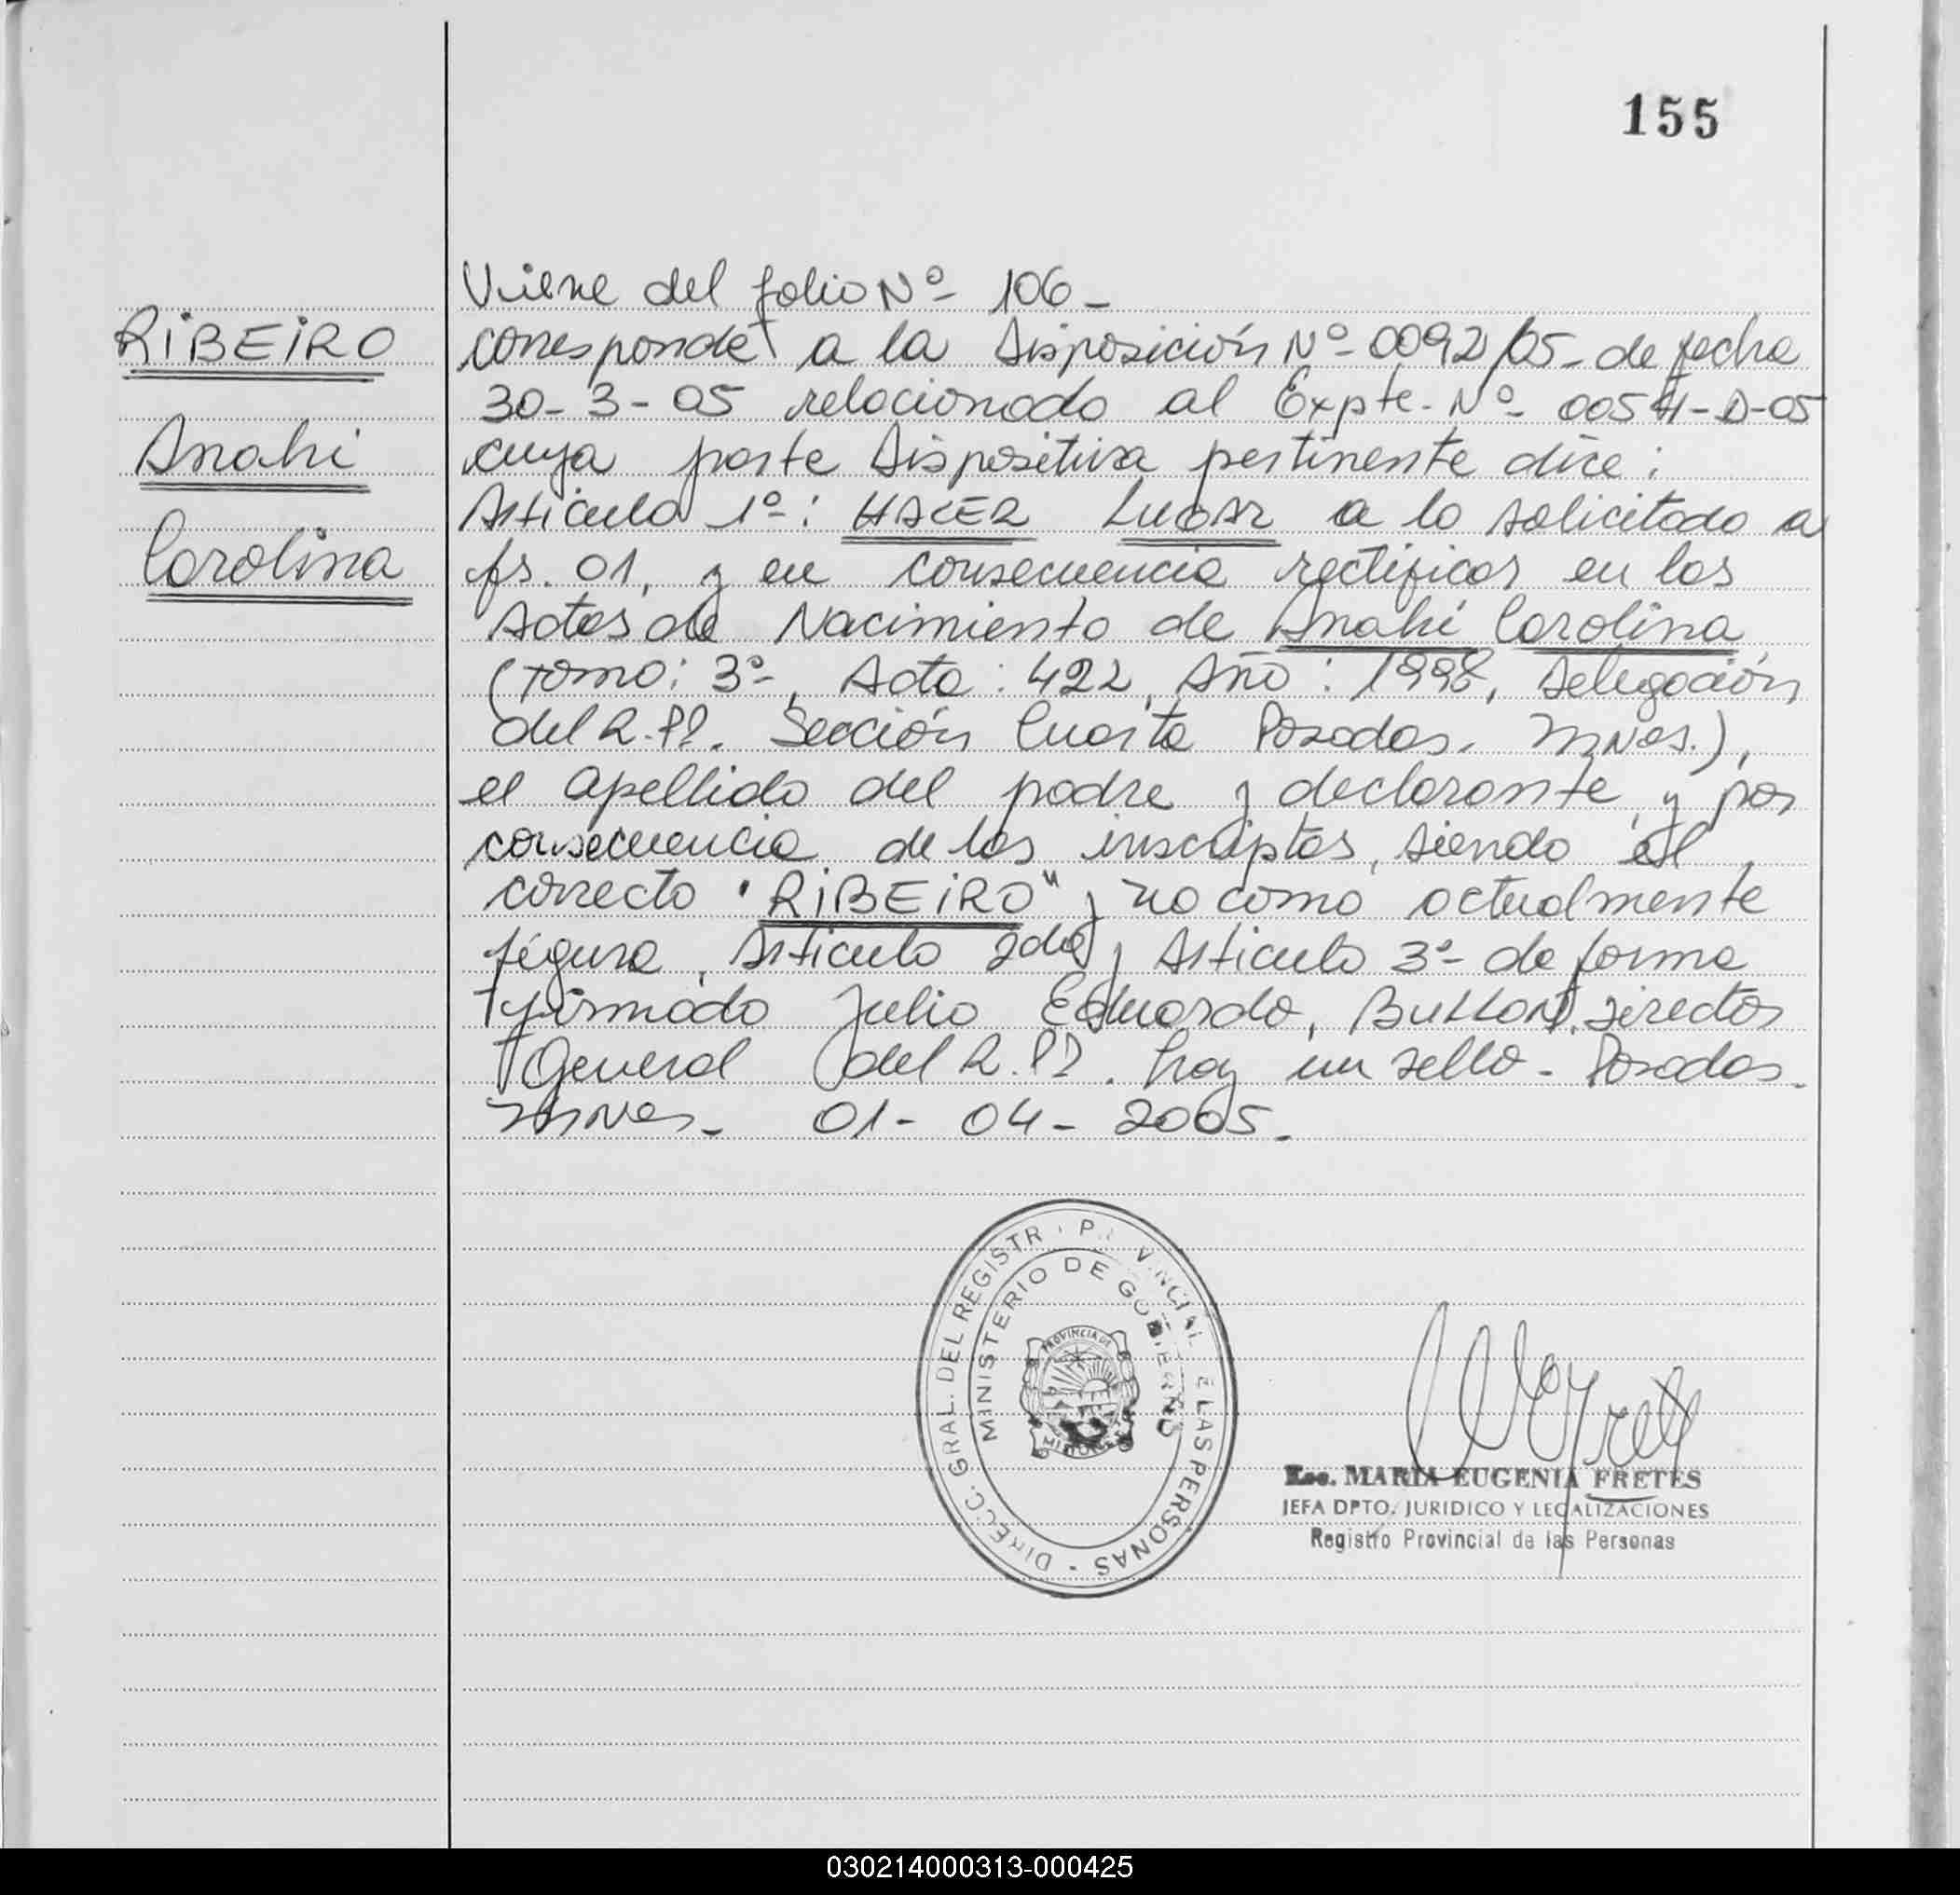 155
RIBEIRO
Anahi
Carolina
Viene del folio Nº 106-
corresponde a la Disposición Nº 0092/05- de fecha
30-3-05 relacionado al Expte. Nº 0054-D-05
cuya parte Dispositiva pertinente dice:
Articulo 1º: HACER LUGAR a lo solicitado a
fs. 01, y en consecuencia rectificar en las
Actas de Nacimiento de Anahi Carolina
(Tomo: 3º, Acta: 422, Año: 1998, Delegación
del R.P.P. Sección Cuarta Posadas. Mnes.),
el apellido del padre y declarante, y por
consecuencia de los inscriptos, siendo el
correcto "RIBEIRO" y no como actualmente
figura, Articulo 2do y Articulo 3º de forma
firmado Julio Eduardo, BULLON, Director
General del R.P.P. hay un sello - Posadas.
Mnes. 01-04-2005.
DIRECC. GRAL. DEL REGISTR PR VINCIAL E LAS PERSONAS -
MINISTERIO DE GOBIERNO
PROVINCIA DE
MISIONES
Esc. MARIA EUGENIA FRETES
JEFA DPTO. JURIDICO Y LEGALIZACIONES
Registro Provincial de las Personas
030214000313-000425